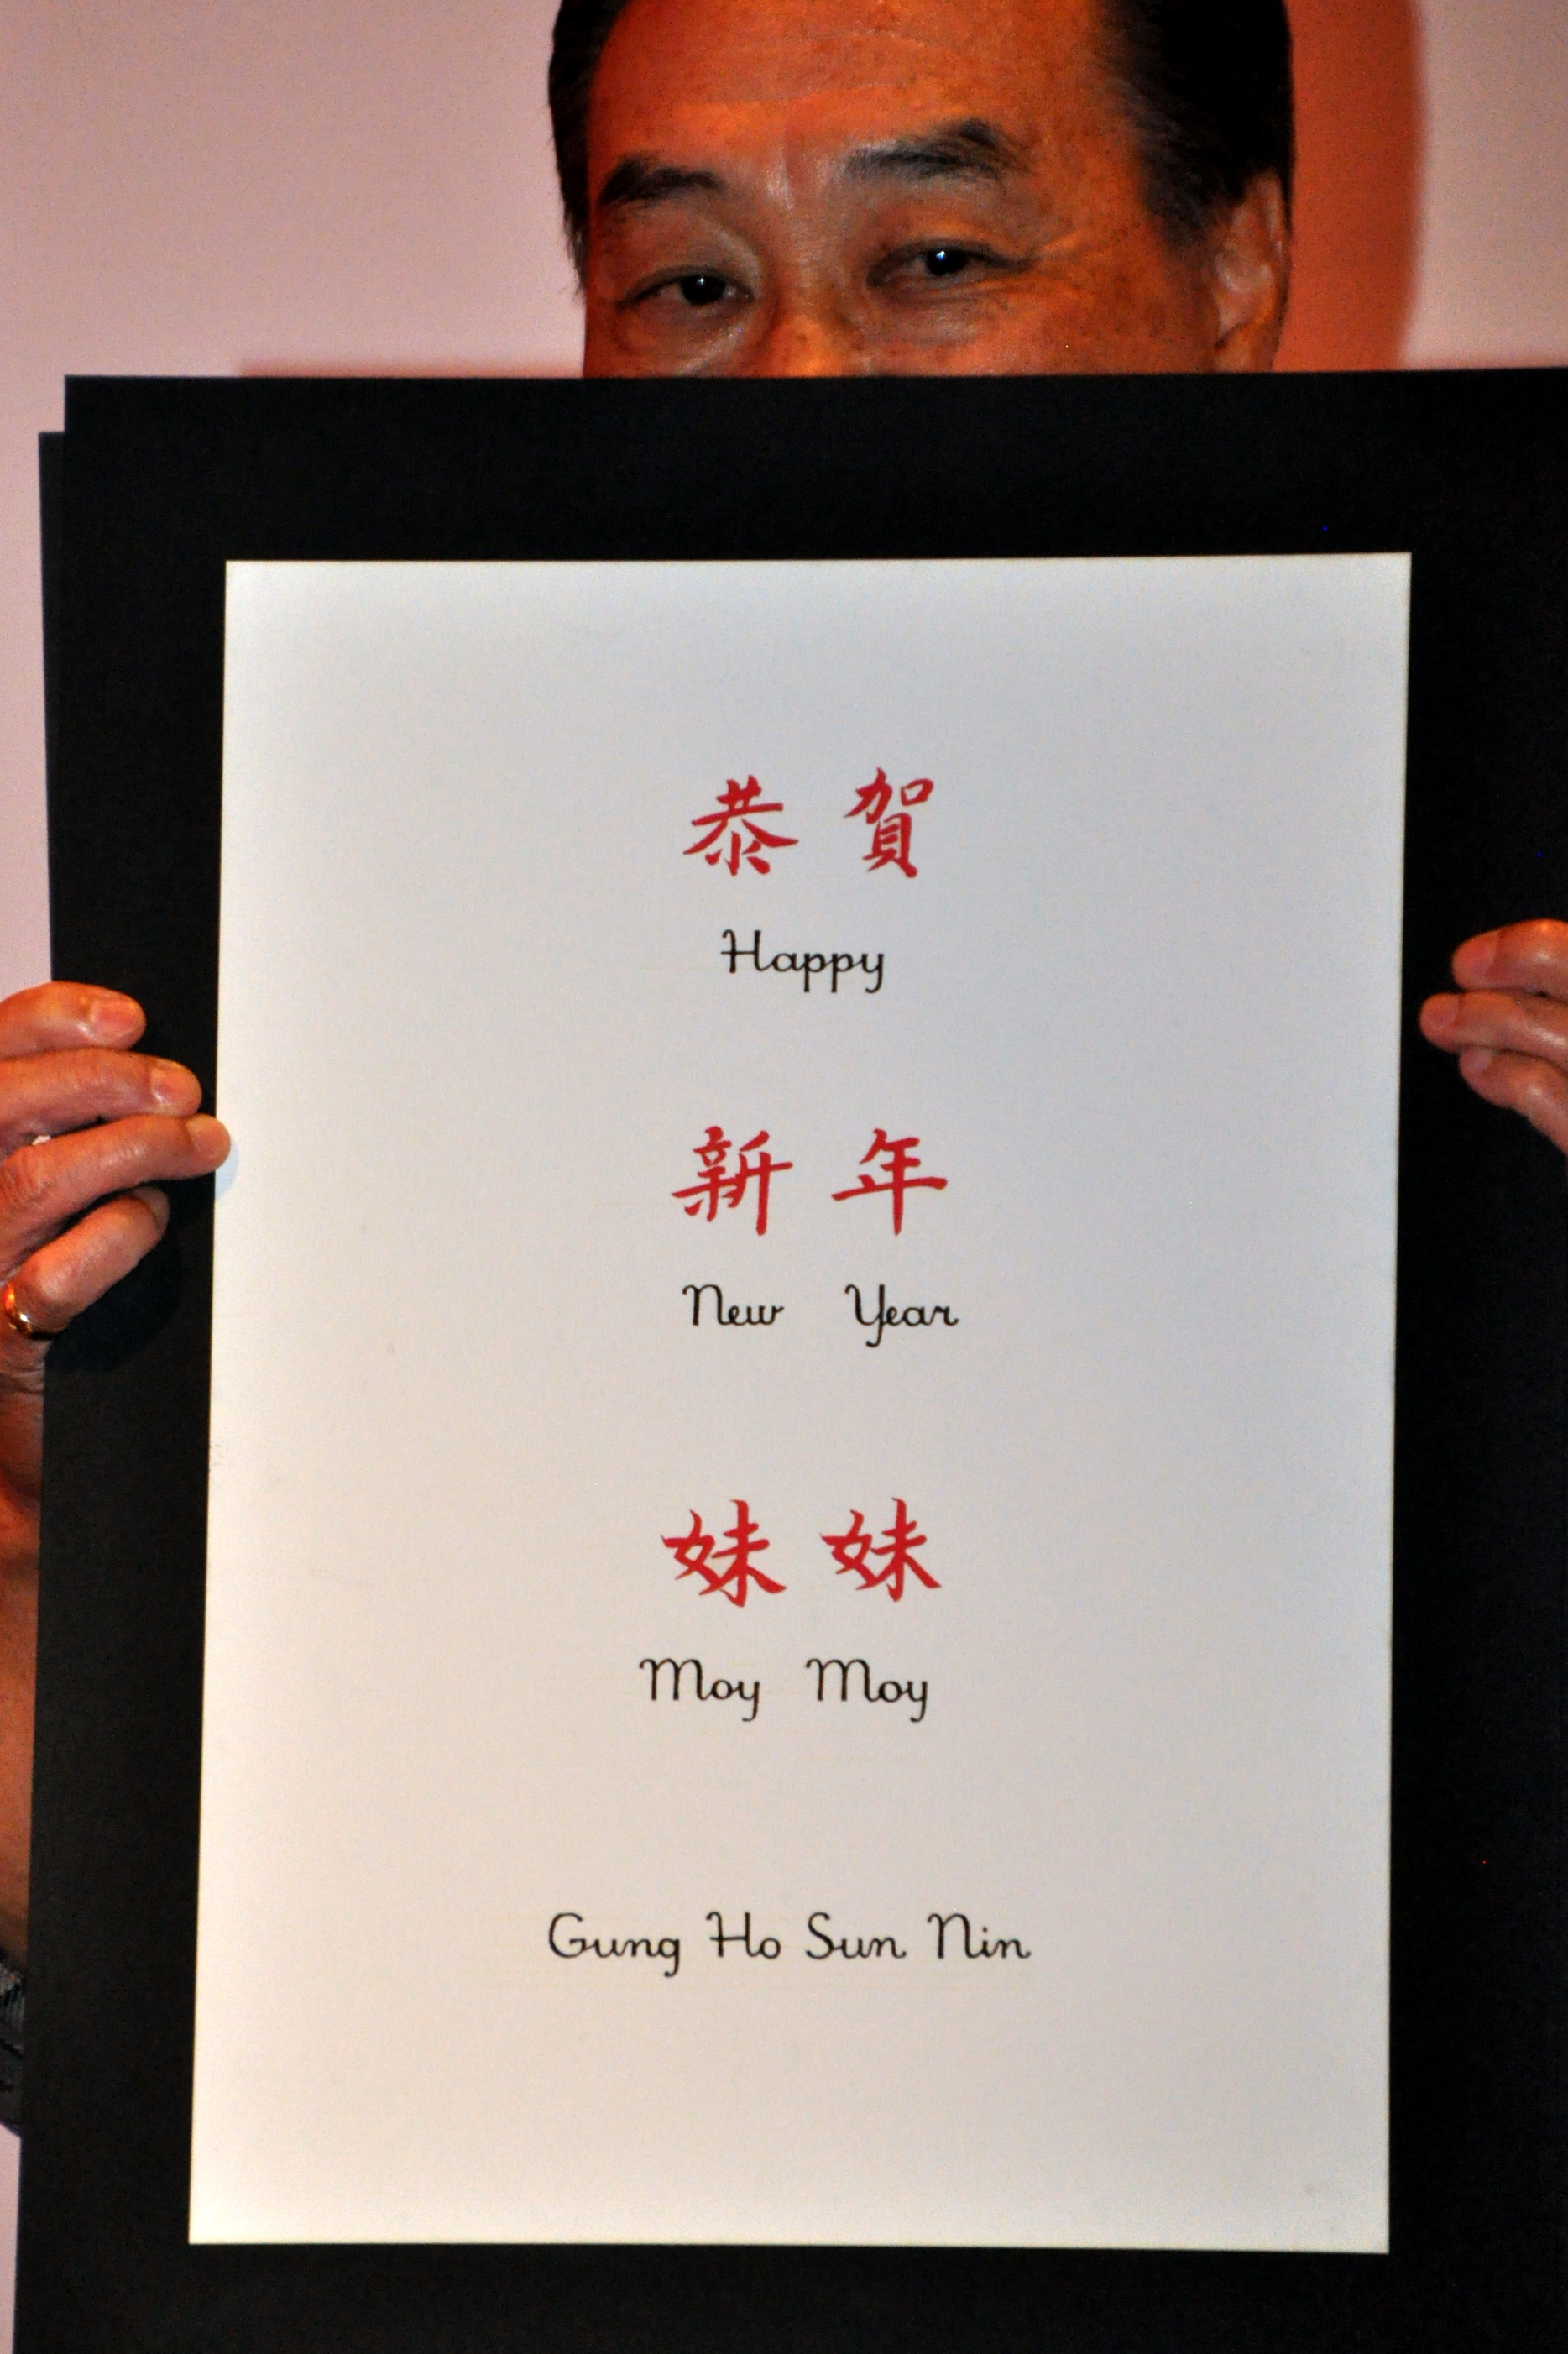 恭賀
Happy
新年
New Year
妹妹
Moy Moy
Gung Ho Sun Nin